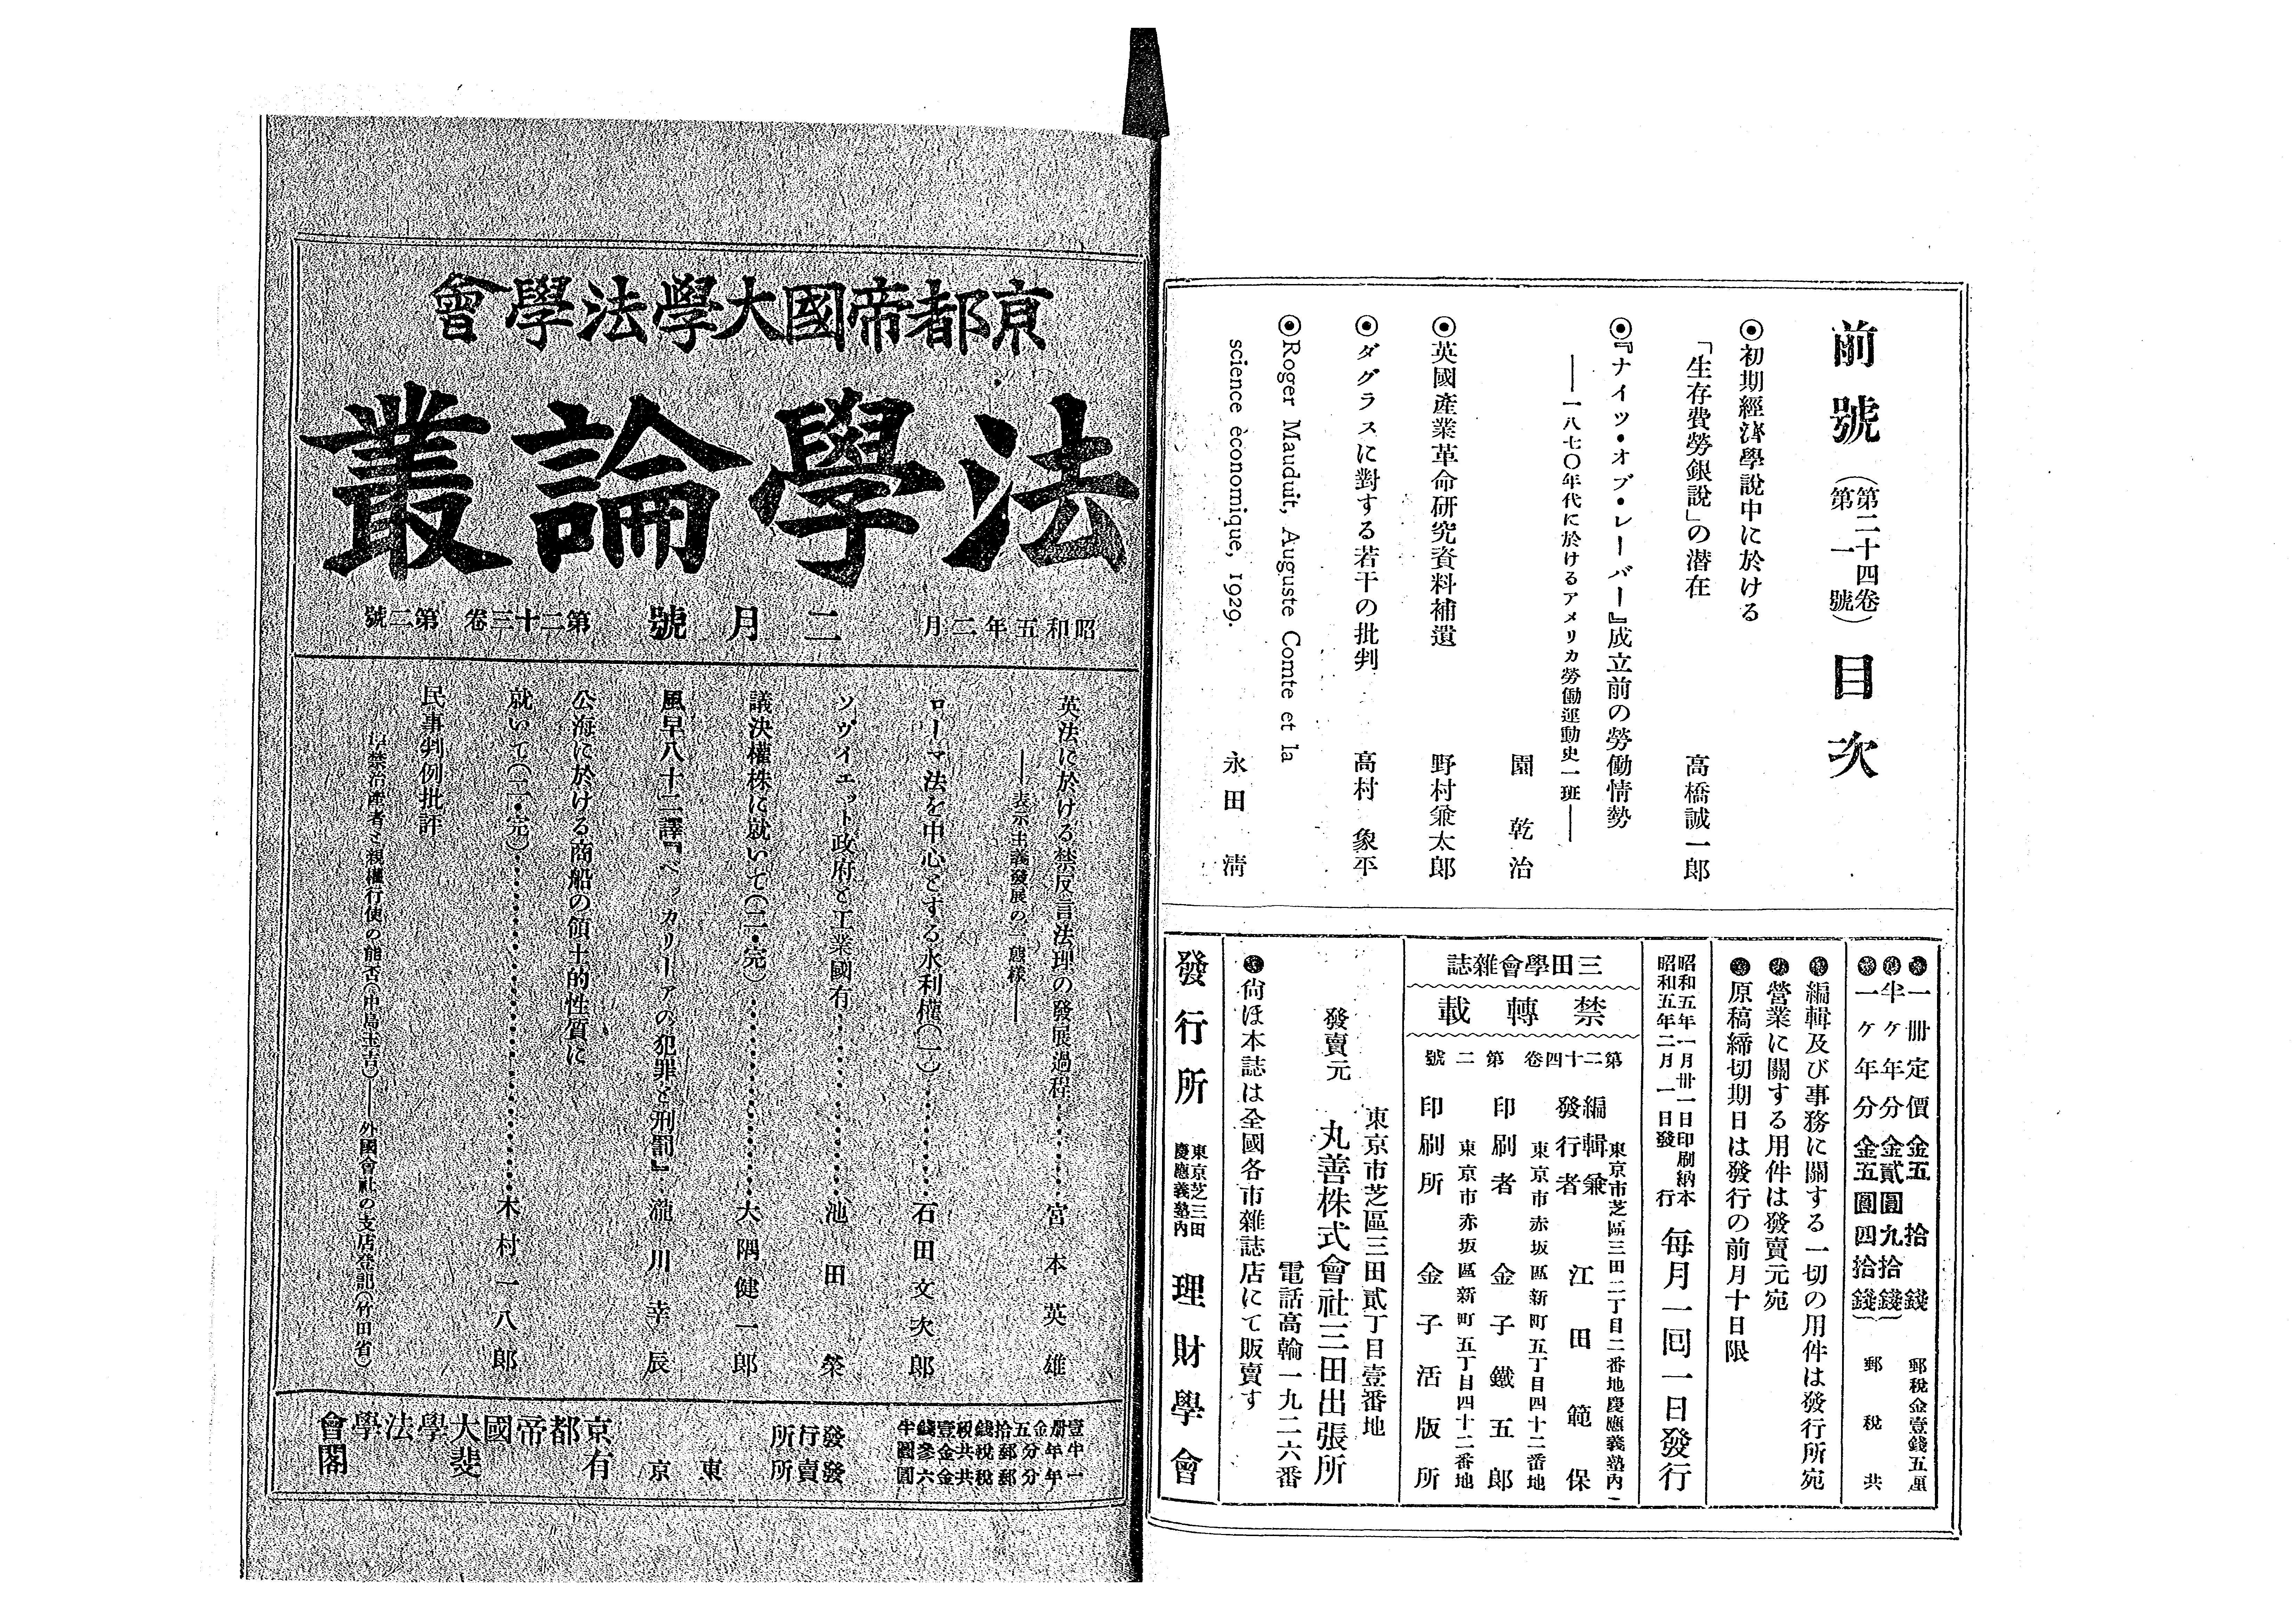 前號（第二十四卷第一號）目次
◉初期經濟學說中に於ける
「生存費勞銀說」の潜在　高橋誠一郎
◉『ナイツ・オブ・レーバー』成立前の勞働情勢
――一八七〇年代に於けるアメリカ勞働運動史一班――
園乾治
◉英國產業革命硏究資料補遺　野村兼太郎
◉ダグラスに對する若干の批判　高村象平
◉Roger Mauduit, Auguste Comte et la
science èconomique, 1929.　永田淸
一冊定價金五拾錢　郵稅金壹錢五厘
半ケ年分金貳圓九拾錢
一ケ年分金五圓四拾錢　郵稅共
編輯及び事務に關する一切の用件は發行所宛
營業に關する用件は發賣元宛
原稿締切期日は發行の前月十日限
昭和五年一月卅一日印刷納本
昭和五年二月一日發行
每月一回一日發行
三田學會雜誌
禁轉載
第二十四卷第二號
東京市芝區三田二丁目二番地慶應義塾內
編輯兼發行者　江田範保
東京市赤坂區新町五丁目四十二番地
印刷者　金子鐵五郎
東京市赤坂區新町五丁目四十二番地
印刷所　金子活版所
東京市芝區三田貳丁目壹番地
發賣元　丸善株式會社三田出張所
電話高輪一九二六番
尙ほ本誌は全國各市雜誌店にて販賣す
發行所　東京芝三田慶應義塾內　理財學會
京都帝國大學法學會
法學論叢
昭和五年二月　二月號　第二十三卷　第二號
英法に於ける禁反言法理の發展過程…………宮本英雄
――表示主義發展の一態樣――
ローマ法を中心とする水利權（一）…………石田文次郎
ソヴイエット政府と工業國有…………池田榮
議決權株に就いて（二・完）…………大隅健一郎
風早八十二譯『ベッカリーアの犯罪と刑罰』…瀧川幸辰
公海に於ける商船の領土的性質に
就いて（二・完）…………木村一八郎
民事判例批評
準禁治產者ミ親權行使の能否（中島玉吉）――外國會社の支店登記（竹田省）
壹册金五拾錢稅壹錢半
半年分郵稅共金參圓
一年分郵稅共金六圓
發行所　京都帝國大學法學會
發賣所　東京　有斐閣